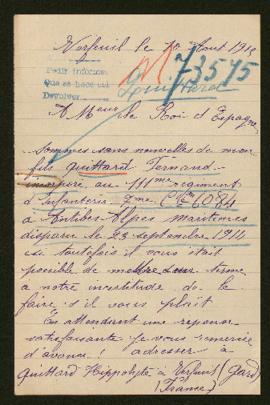 Verfeuil le 10 Aout 1915
Pedir informes
Que se hace aqui
Devolver
M 73595
Quittard
A Mr le Roi d'Espagne
Sommes sans nouvelles de mon
fils Quittard Fernand
incorporé au 111me regiment
d'Infanterie Cie 6084
à Antibes Alpes Maritimes
disparu le 23 septembre 1914
si toutefois il vous était
possible de mettre un terme
à notre incertitude de le
faire s'il vous plait
En attendant une reponse
satisfaisante je vous remercie
d'avance ! adresser à
Quittard Hippolyte à Verfeuil (Gard)
(France)